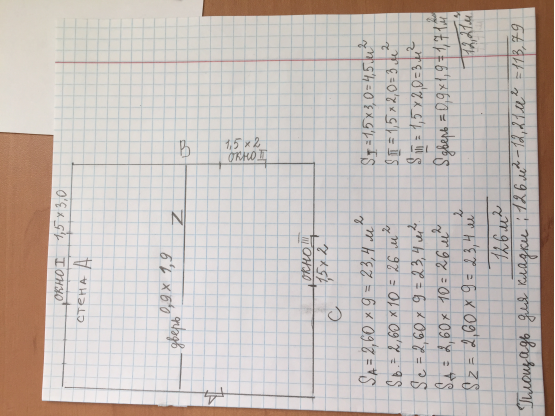 окно I 1,5 × 3,0
стена А
В
Z
0,9 × 1,9
дверь
1,5 × 2
окно II
окно III
1,5 × 2
С
Д
S_A = 2,60 × 9 = 23,4 м²
S_b = 2,60 × 10 = 26 м²
S_c = 2,60 × 9 = 23,4 м²
S_д = 2,60 × 10 = 26 м²
S_z = 2,60 × 9 = 23,4 м²
126 м²
S_I = 1,5 × 3,0 = 4,5 м²
S_II = 1,5 × 2,0 = 3 м²
S_III = 1,5 × 2,0 = 3 м²
S дверь = 0,9 × 1,9 = 1,71 м²
12,21 м²
Площадь для кладки: 126 м² - 12,21 м² = 113,79